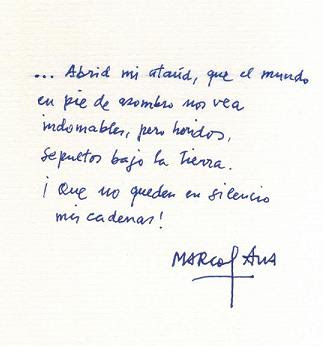 ... Abrid mi ataúd, que el mundo
en pie de asombro nos vea
indomables, pero heridos,
sepultos bajo la Tierra.
¡Que no queden en silencio
mis cadenas!
MARCOS ANA